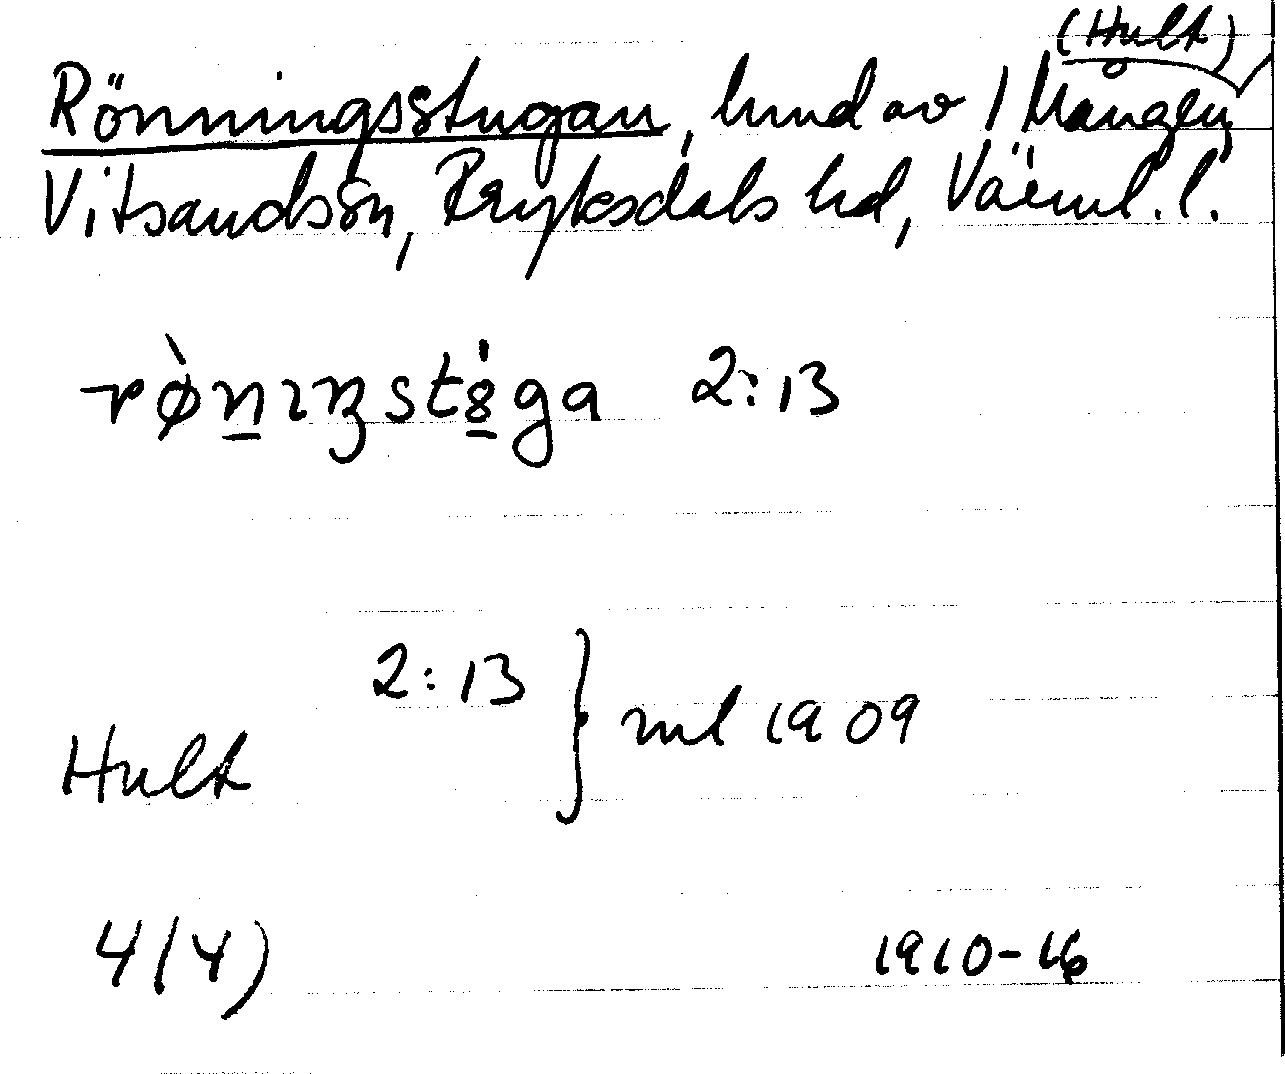 (Hult)
Rönningsstugan, hmd av 1 Mången,
Vitsands sn, Fryksdals hd, Värml. l.
rø̀nıŋstȣ́ga 2:13
2:13 } ml 1909
Hult
4/4) 1910-16